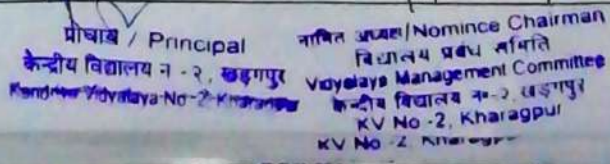 प्राचार्य / Principal
केन्द्रीय विद्यालय न - २, खड़गपुर
Kendriya Vidyalaya-No-2-Kharagpur
नामित अध्यक्ष/Nominee Chairman
विद्यालय प्रबंध समिति
Vidyalaya Management Committee
केन्द्रीय विद्यालय न०-२, खड़गपुर
KV No -2, Kharagpur
KV No -2, Kharagpur